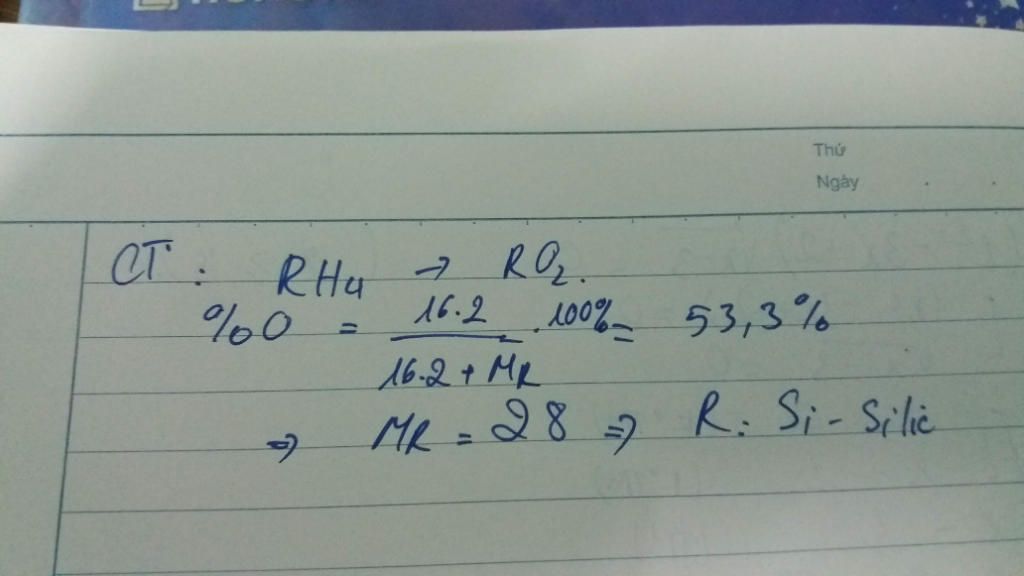 Thứ
Ngày
CT: RH4 → RO2.
%O = 16.2 / 16.2 + MR . 100% = 53,3%
⇒ MR = 28 ⇒ R: Si - Silic